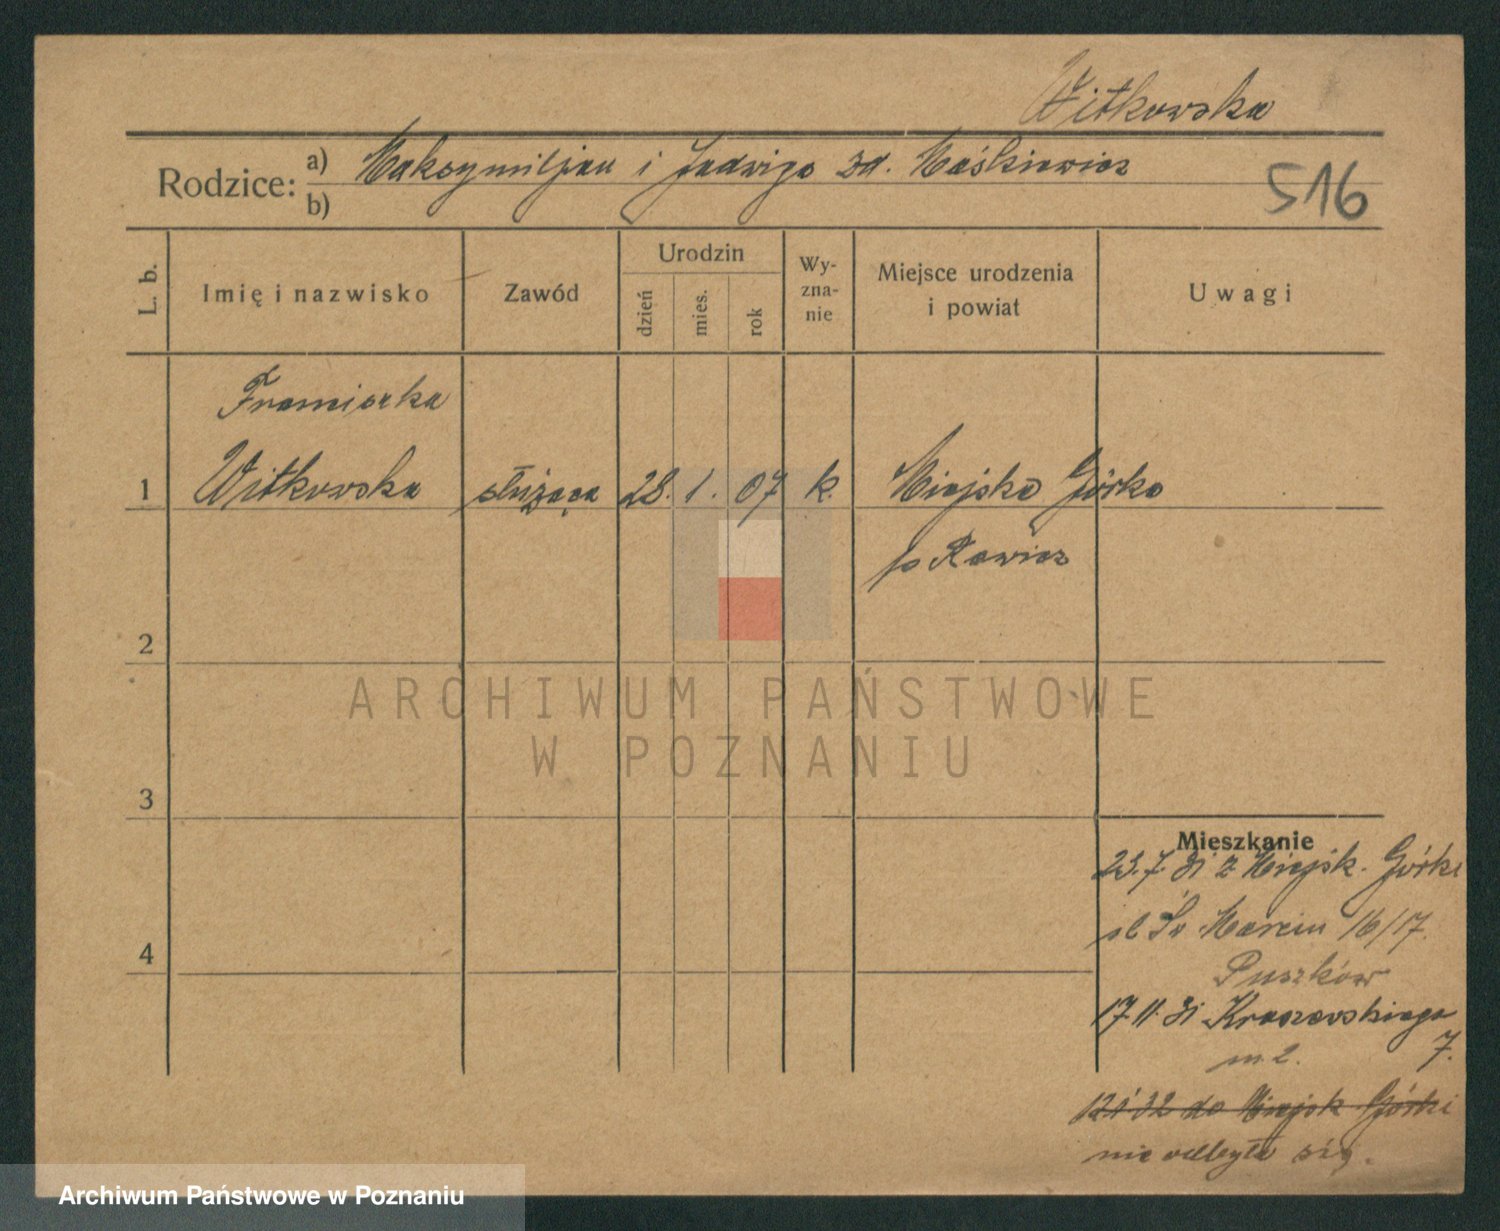 Witkowska
Rodzice: a) Maksymiljan i Jadwiga zd. Maśkiewicz
b)
516
L. b.
Imię i nazwisko
Zawód
Urodzin
dzień
mies.
rok
Wy-
zna-
nie
Miejsce urodzenia
i powiat
Uwagi
Franciszka
1 Witkowska służąca 28. 1. 07 k. Miejska Górka
p Rawicz
2
ARCHIWUM PAŃSTWOWE
W POZNANIU
3
Mieszkanie
23.7.31 z Miejsk. Górki
Św Marcin 16/17.
4
Puszków
17 11 31 Kraszewskiego
m. 2. 7.
12 1 32 do Miejsk Górki
nie odbyła się.
Archiwum Państwowe w Poznaniu